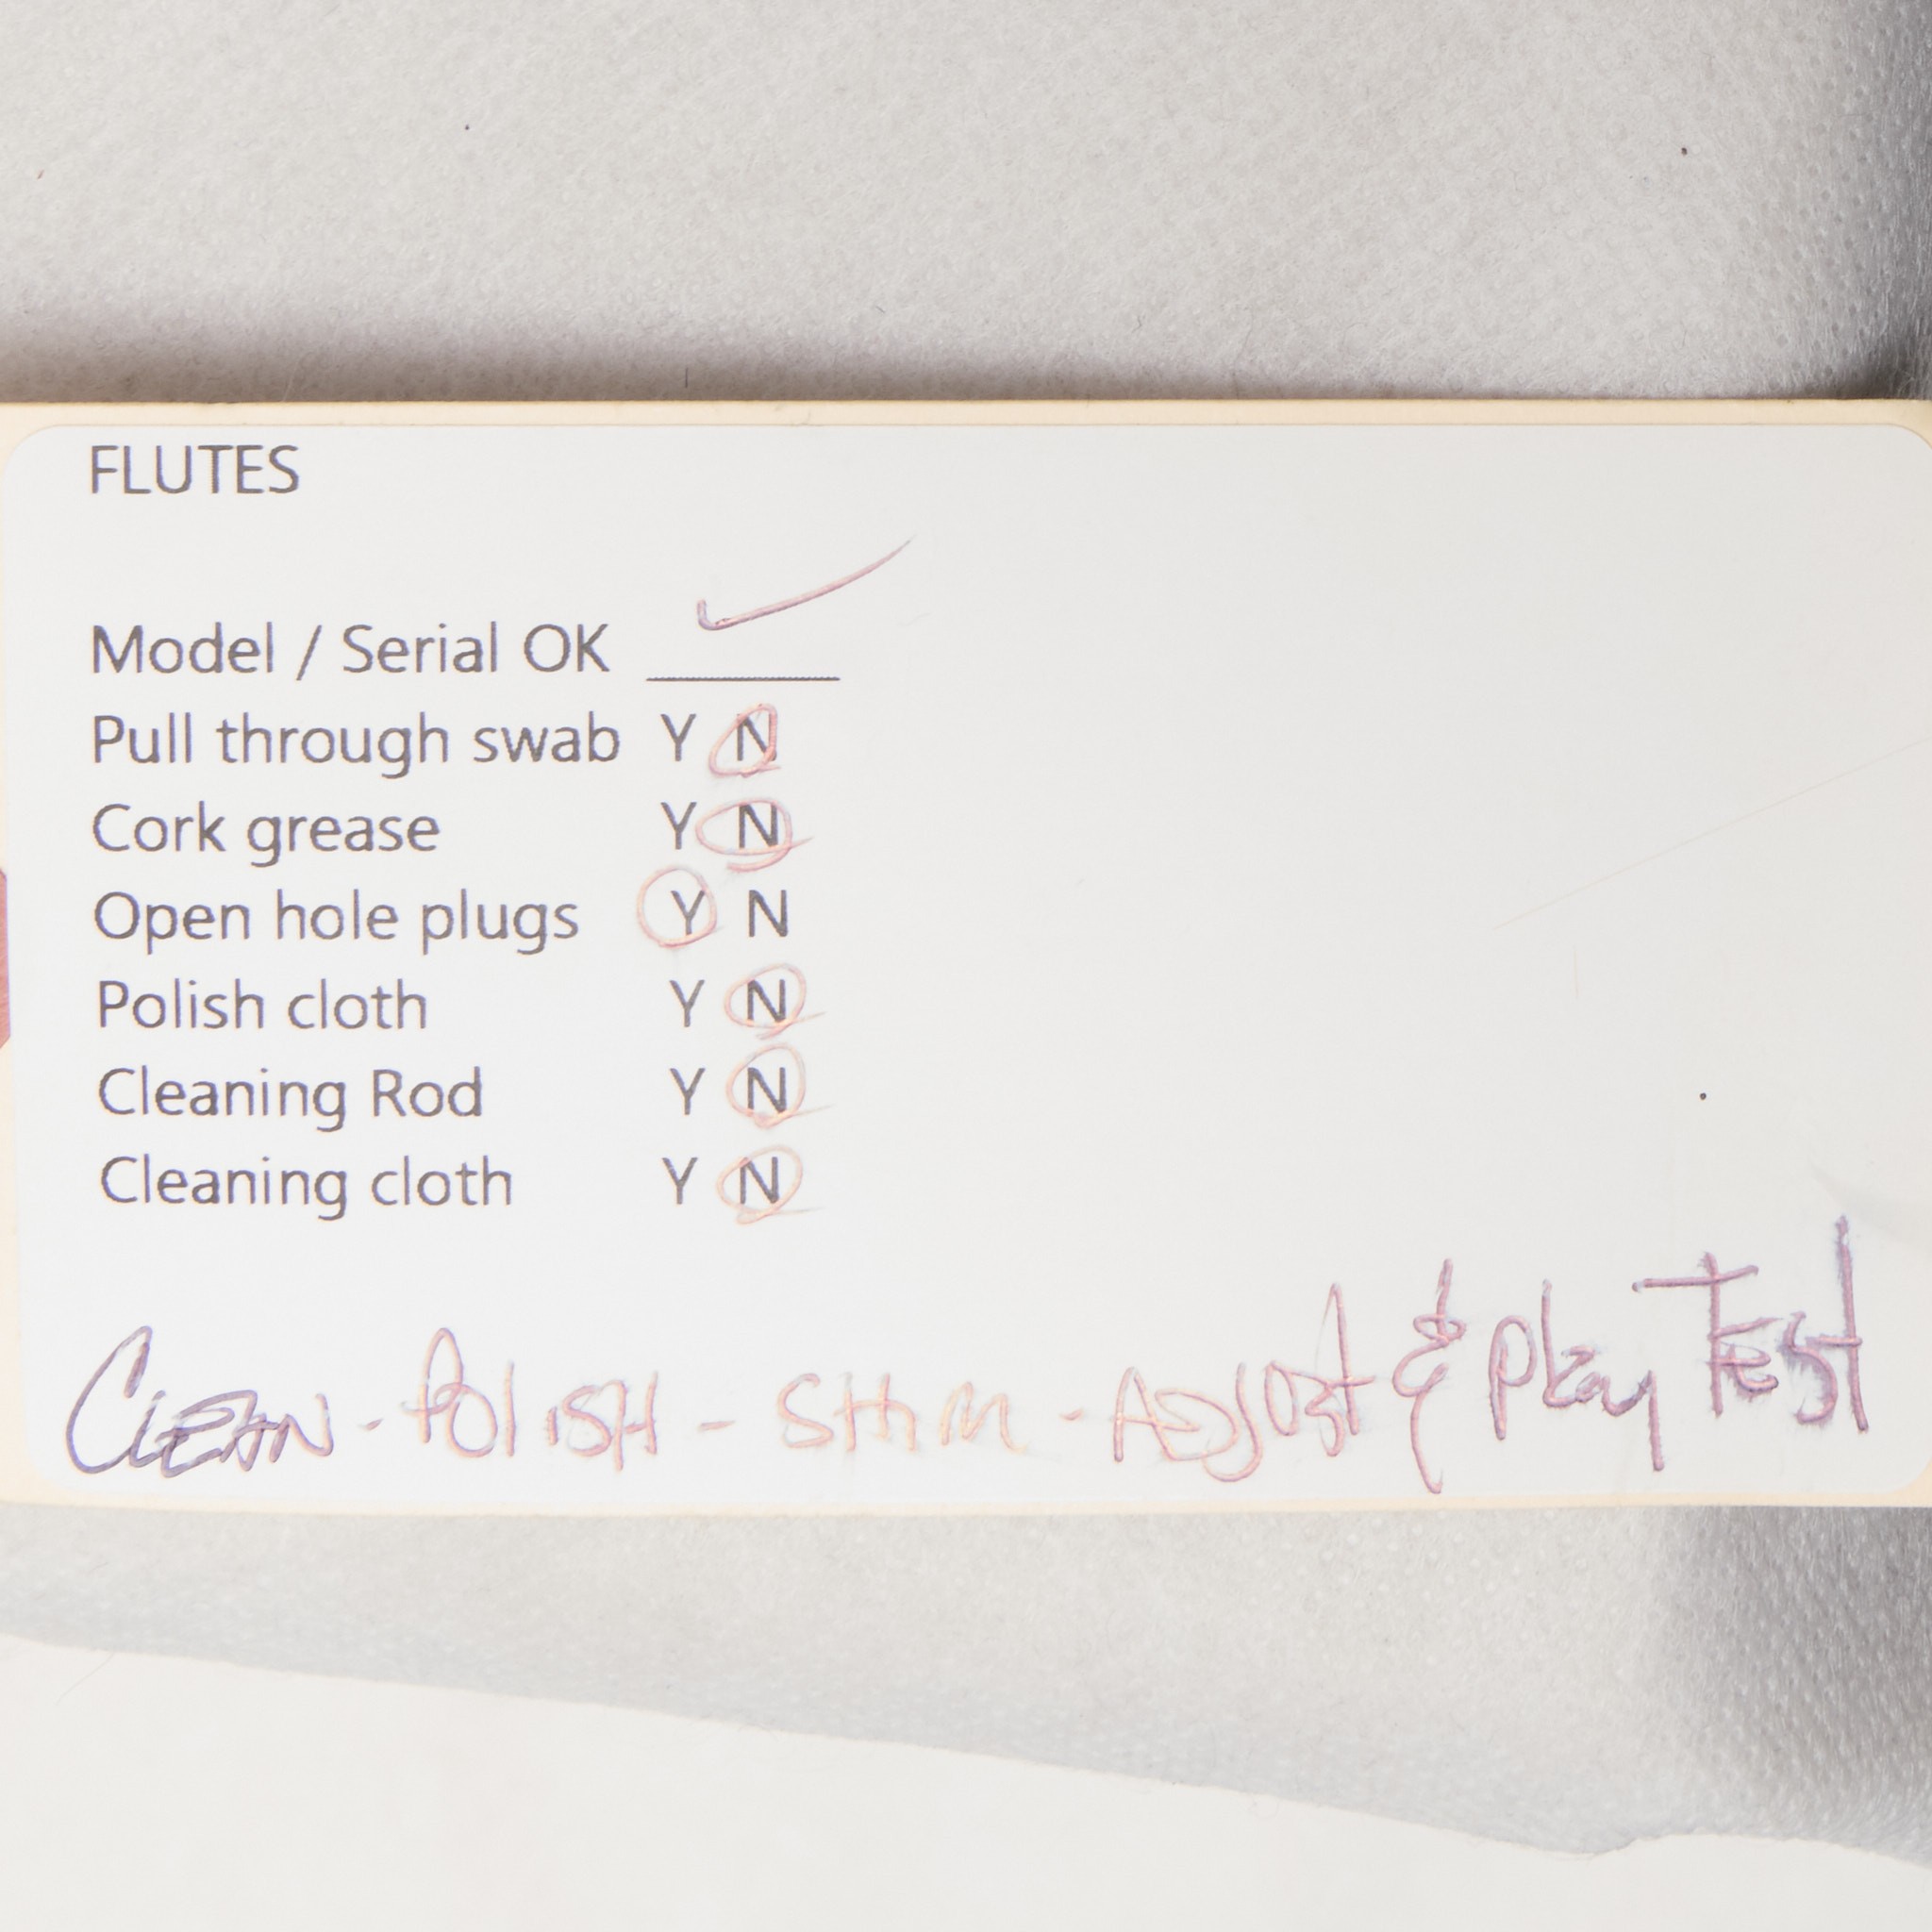 FLUTES
Model / Serial OK ______ ✓
Pull through swab Y N
Cork grease Y N
Open hole plugs Y N
Polish cloth Y N
Cleaning Rod Y N
Cleaning cloth Y N
CLEAN - POLISH - SHIM - ADJUST & Play TEST